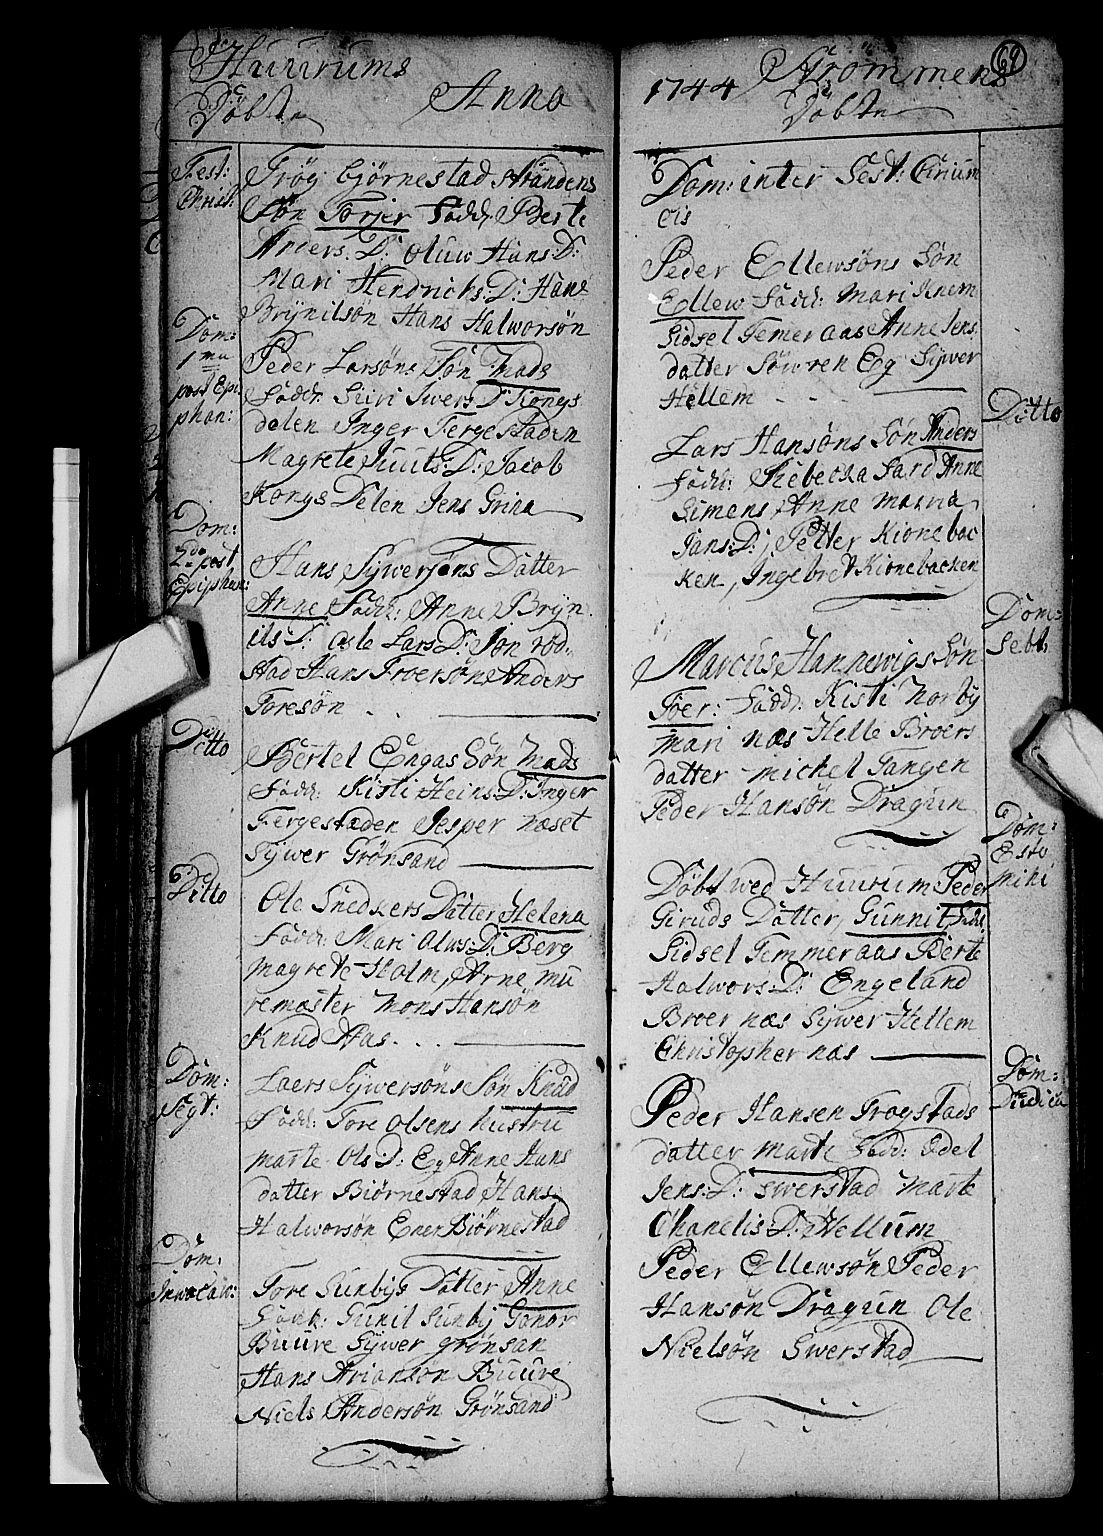 Huurums
Døbte
Anno
Fest:
Christ:
Trøg: Bjørnestad strandens
Søn Torjer Fadd: Berte
Anders. D: Oluw Hans: D:
Mari Hendrichs: D: Hans
Brÿnilsøn Hans Halworsøn
Dom:
1mu
post Epi
phan:
Peder Larsøns Søn Mads
Fadd: Siiri Iwers D: Kongs
delen Inger Fergestaden
Magrete Juuls: D: Jacob
Kongs Delen Jens Grina
Dom:
2da post
Epiphan:
Hans Sÿwersøns Datter
Anne Fadd: Anne Brÿn
ils D: Asle Lars D: Jon rød
stad Hans Froersøn Anders
Foresøn
Ditto
Bertel Engas Søn Mads
Fadd: Kisti Heins: D: Inger
Fergestæden Jesper næset
Sÿwer Grønsand
Ditto
Ole Snedkers Datter Helena
Fadd: Mari Olus: D: Berg
Magrete Holm, Arne mu
remæster Mons Hansøn
Knud Aas
Dom:
Segt:
Laers Sÿwersøns Søn Knud
Fadd: Tore Olsens hustru
Marte Ols: D: Eg Anne Hans
datter Biørnestad Hans
Halworsøn Ener Biørnestad
Dom:
Inwocaw:
Tore Sunbÿs Datter Anne
Fadd: Gunil Sunbÿ Gonor
Buure Sÿwer grønsan
Hans Ariansøn Buure
Niels Andersøn Grønsand
69
1744
Strømmens
Døbte
Dom: inter Fest: Circum
cis
Peder Ellewsøns Søn
Ellew Fadd: Mari Knem
Sidsel Temeraas Anne Jens
datter Søwren Eg Sÿwer
Hellem
Ditto
Lars Hansøns Søn Anders
Fadd: Rebecka Fard Anne
Simens Anne Maria
Jans: D: Petter Kionebac
ken, Ingebret Kionebacken
Dom:
Sebt:
Marcus Hannewigs Søn
Toer: Fadd: Kisti Norbÿ
Mari næs Helle Broers
datter Michel Tangen
Peder Hansøn Dragun
Dom:
Esto
mihi
Døbt wed Huurum Peder
Giruds Datter, Gunnil, Fad:
Sidsel Temmeraas Berte
Halwors: D: Engeland
Broer næs Sÿwer Hellem
Christopher næs
Dom:
Judica
Peder Hansen Trogstads
datter Marte Fadd: Edel
Jens: D: Swerstad Marte
Chanelis: D: Hellum
Peder Ellewsøn Peder
Hansøn Dragun Ole
Nielsøn Swerstad